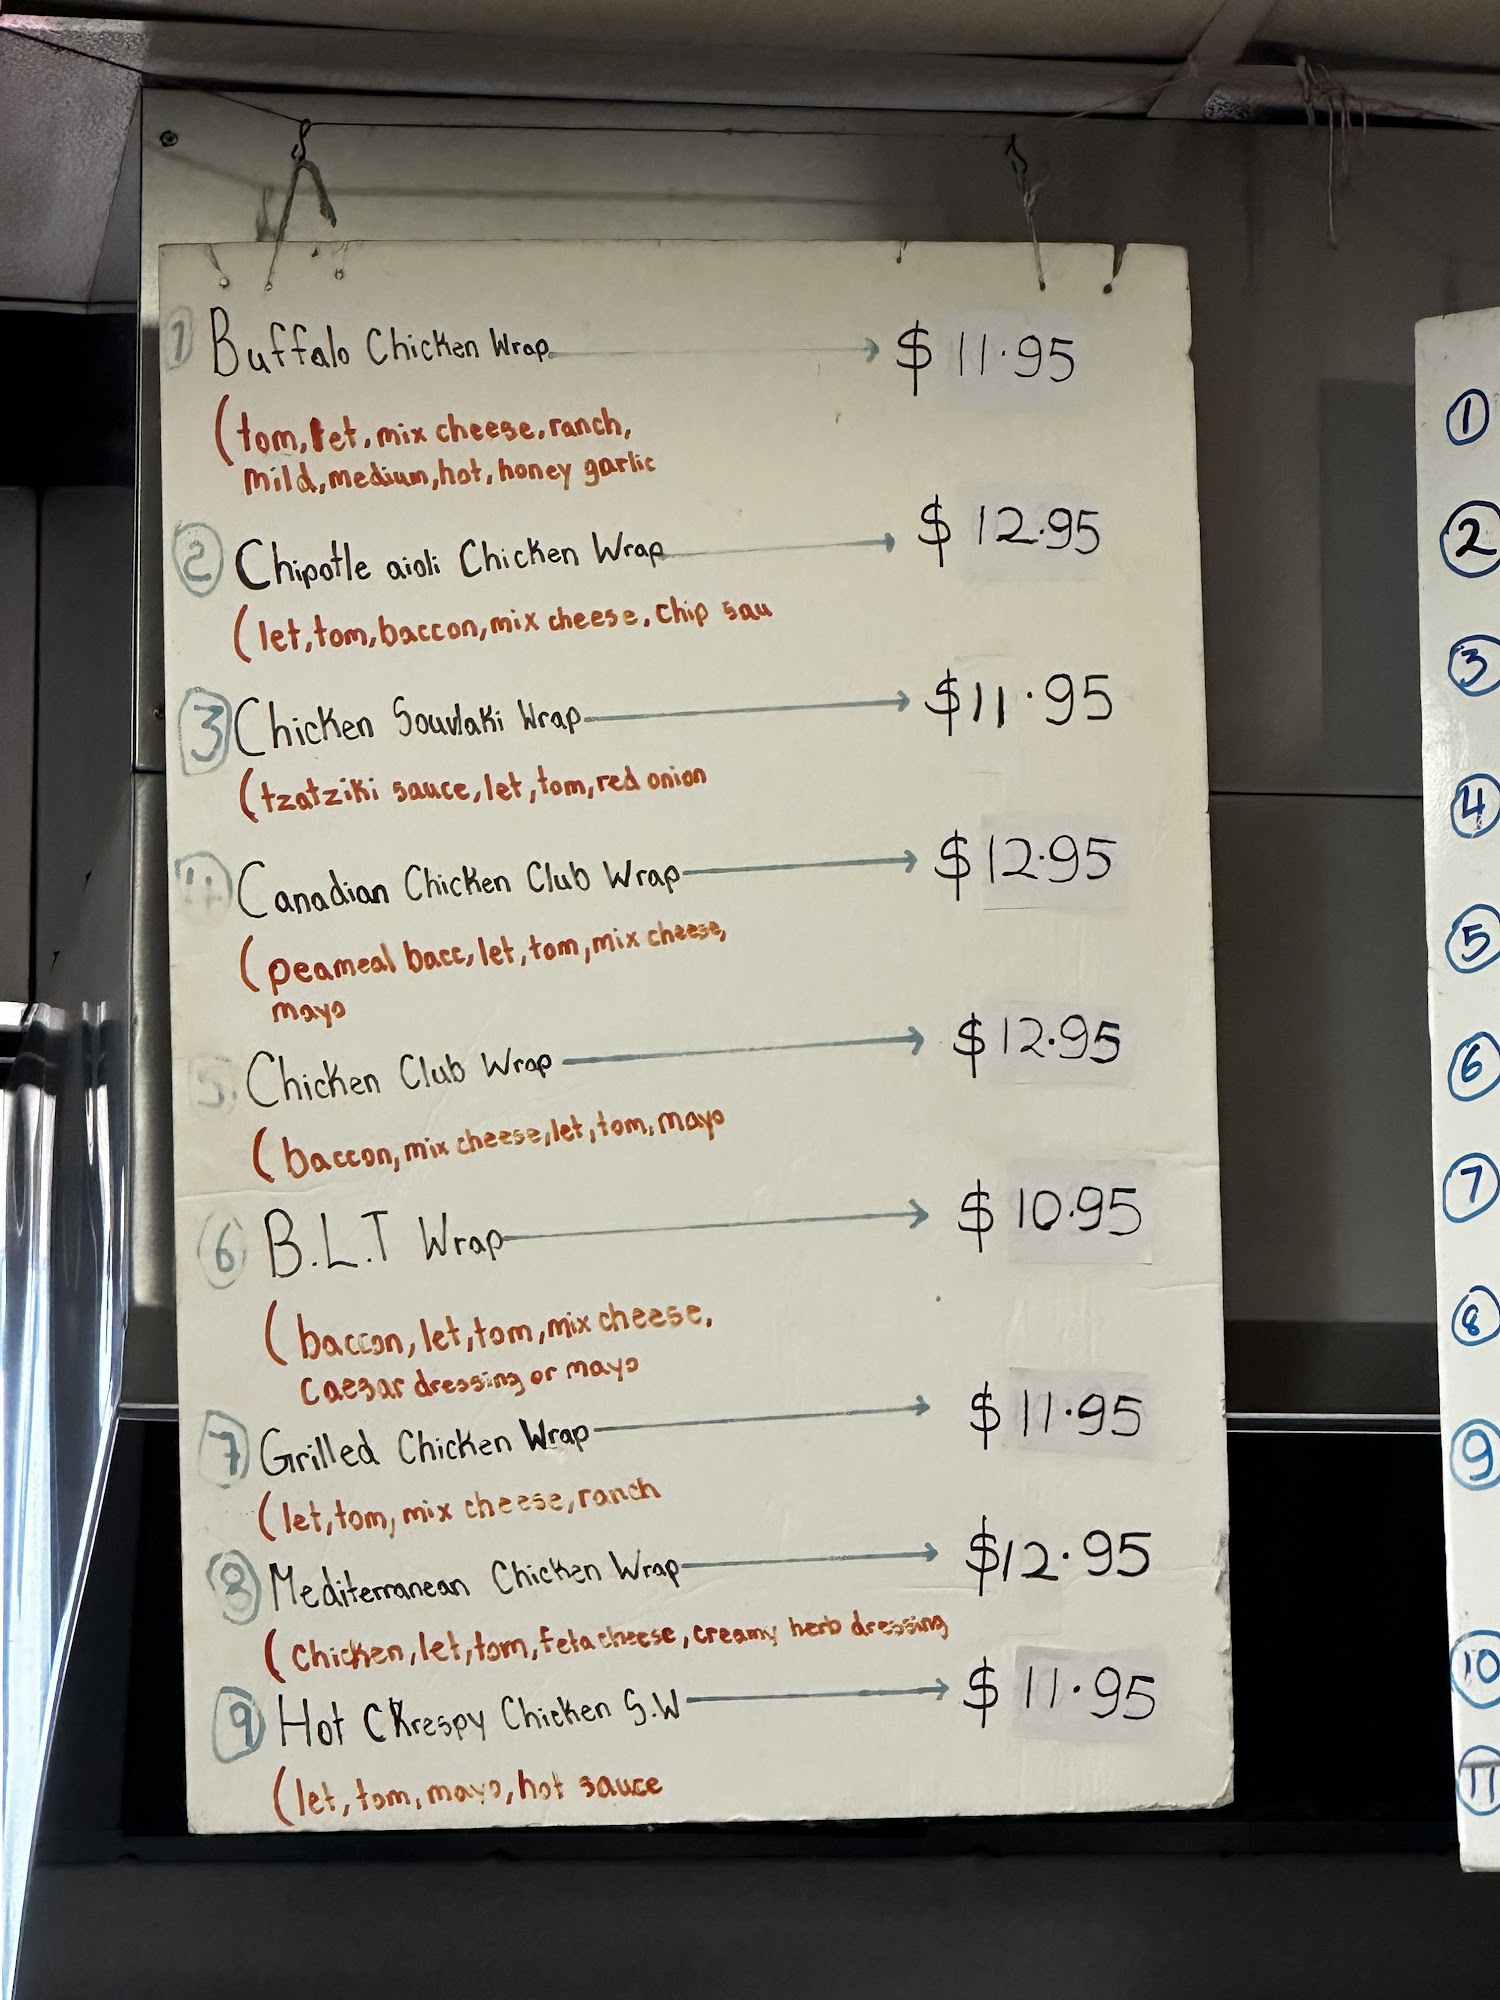 1 Buffalo Chicken Wrap $11.95
(tom, let, mix cheese, ranch,
mild, medium, hot, honey garlic
2 Chipotle aioli Chicken Wrap $12.95
(let, tom, baccon, mix cheese, chip sau
3 Chicken Souvlaki Wrap $11.95
(tzatziki sauce, let, tom, red onion
4 Canadian Chicken Club Wrap $12.95
(peameal bacc, let, tom, mix cheese,
mayo
5 Chicken Club Wrap $12.95
(baccon, mix cheese, let, tom, mayo
6 B.L.T Wrap $10.95
(baccon, let, tom, mix cheese,
caesar dressing or mayo
7 Grilled Chicken Wrap $11.95
(let, tom, mix cheese, ranch
8 Mediterranean Chicken Wrap $12.95
(chicken, let, tom, feta cheese, creamy herb dressing
9 Hot Crespy Chicken S.W $11.95
(let, tom, mayo, hot sauce
1
2
3
4
5
6
7
8
9
10
11